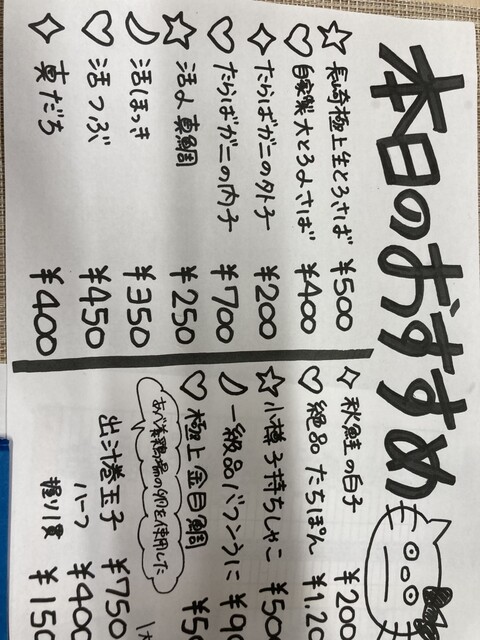 本日のおすすめ
☆ 長崎極上生とろさば ¥500
♡ 自家製大とろ〆さば ¥400
✧ たらばガニの外子 ¥200
♡ たらばガニの内子 ¥700
☆ 活〆真鯛 ¥250
活ほっき ¥350
♡ 活つぶ ¥450
✧ 真だち ¥400
✧ 秋鮭の白子 ¥200
♡ 絶品たちぽん ¥1.20
☆ 小樽子持ちしゃこ ¥500
一級品バフンうに ¥90
♡ 極上金目鯛 ¥50
あべ養鶏場の卵を使用した
出汁巻玉子 ¥750
ハーフ ¥400
握り1貫 ¥150